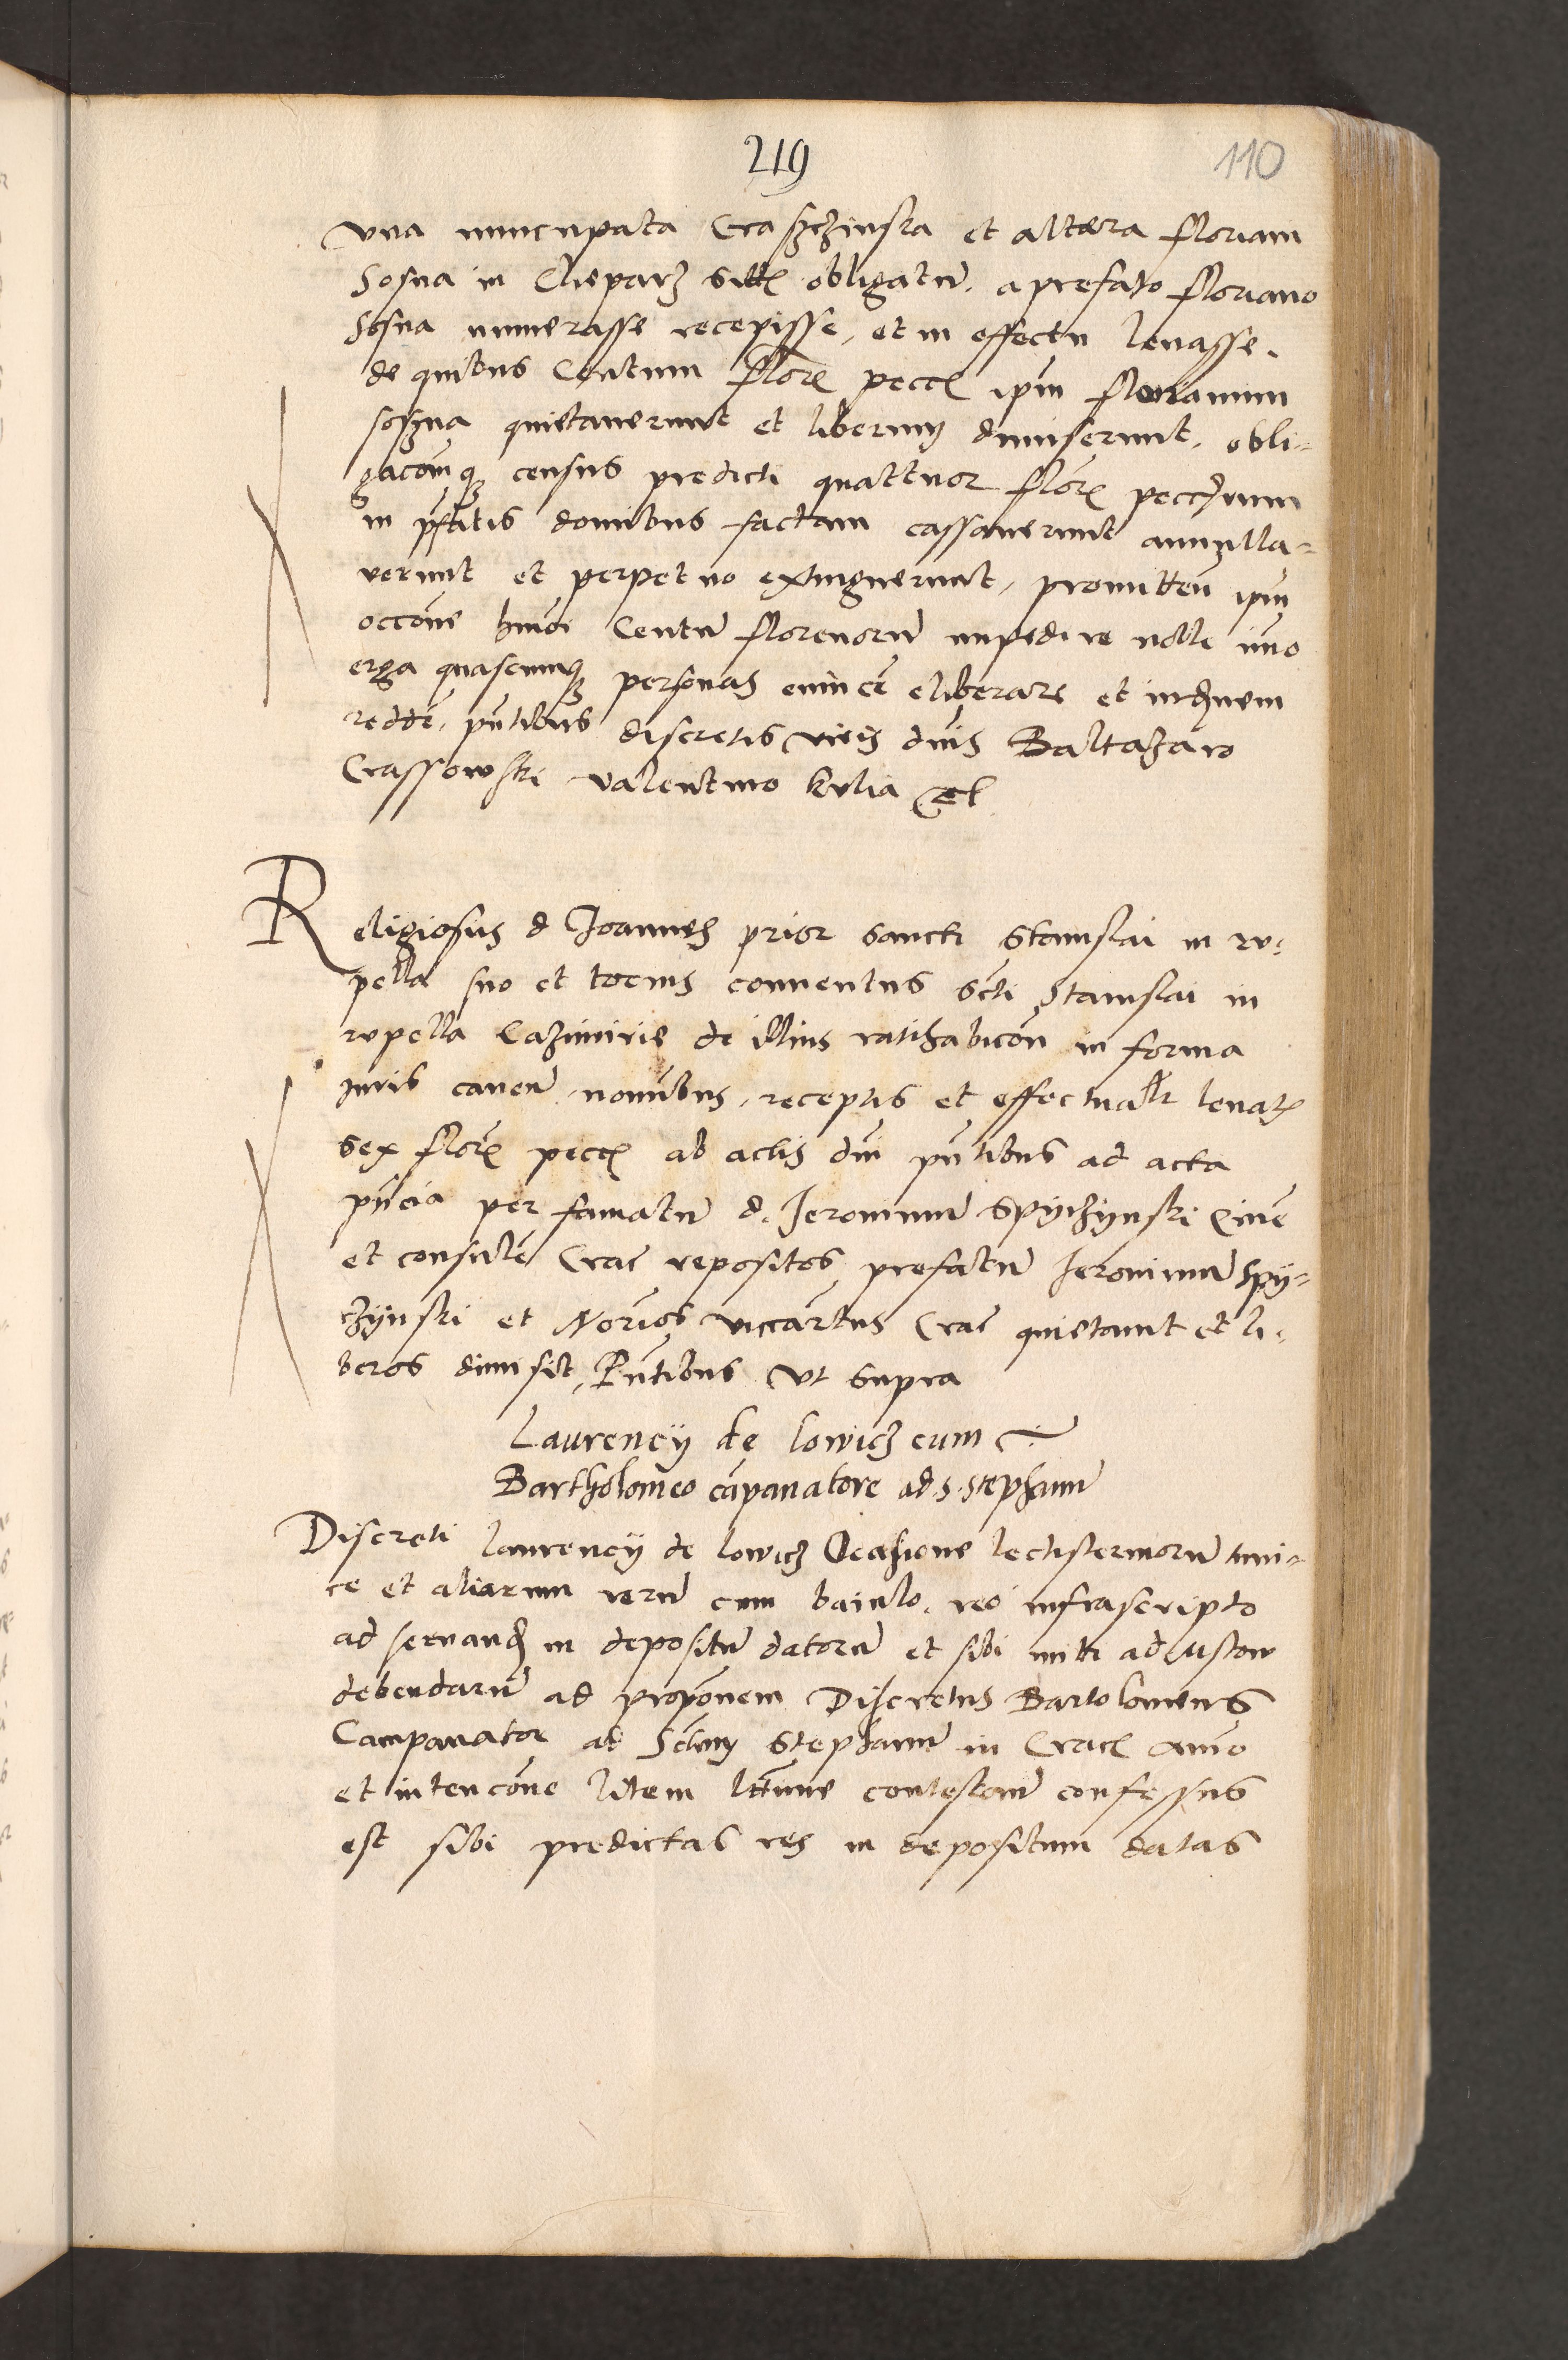 219
110
vna nuncupata Craszczinska et altera floriani
Sosna in Clieparz sitis obligatum a prefato floriano
Sosna numerasse recepisse, et in effectu leuasse.
de quibus Centum flor peccl ipm florianum
soszna quietauerunt et liberum dimiserunt, obli-
gacoīmqz census predicti quattuor flor pecciarum
in pfatis domibus factam cassauerunt annulla-
verunt et perpetuo extinguerunt, promitten ipm
occōne hmōi Centū florenorū impedire nolle imo
erga quascunqz personas euincē eliberare et indemnem
reddē, pntibus discretis viris dnis Baltazaro
Crassowski valentino kulia etc
Religiosus d Joannes prior sancti Stanislai in ru-
pella suo et tocius conuentus scti Stanislai in
rupella Cazimirie de illius ratihabicōn in forma
iuris cauen nomibus, receptis et effectualr leuatis
sex flor peccl ab actis dni pntibus ad acta
pncia per famatū d. Jeronimū Spyczynski Ciuē
et consulē Crac repositos prefatū Jeronimū Spy-
czynski et Norios vicariatus Crac quietauit et li-
beros dimisit, Pntibus vt supra
Laurency de lowicz cum
Bartholomeo cāpanatore ad s. stephanū
Discreti laurency de lowicz Ocasione lectisterniorū tuni-
ce et aliarum rerū cum baiulo, reo infrascripto
ad seruand in depositū datorū et sibi mitti ad
debendarū ad propōnem Discretus Bartolomeus
Campanator ad Sctum Stephanū in Cracl animo
et intencōne litem lttime contestanī confessus
est sibi predictas res in depositum datas